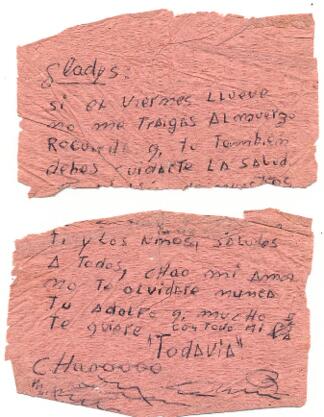 Gladys:
si el viernes llueve
no me traigas almuerzo
Recuerda q. tu también
debes cuidarte la salud
ti y los niños, saludos
a todos, chao mi amor
no te olvidare nunca
Tu Adolfo q. mucho
te quiere con todo mi
"Todavia"
CHaooooo